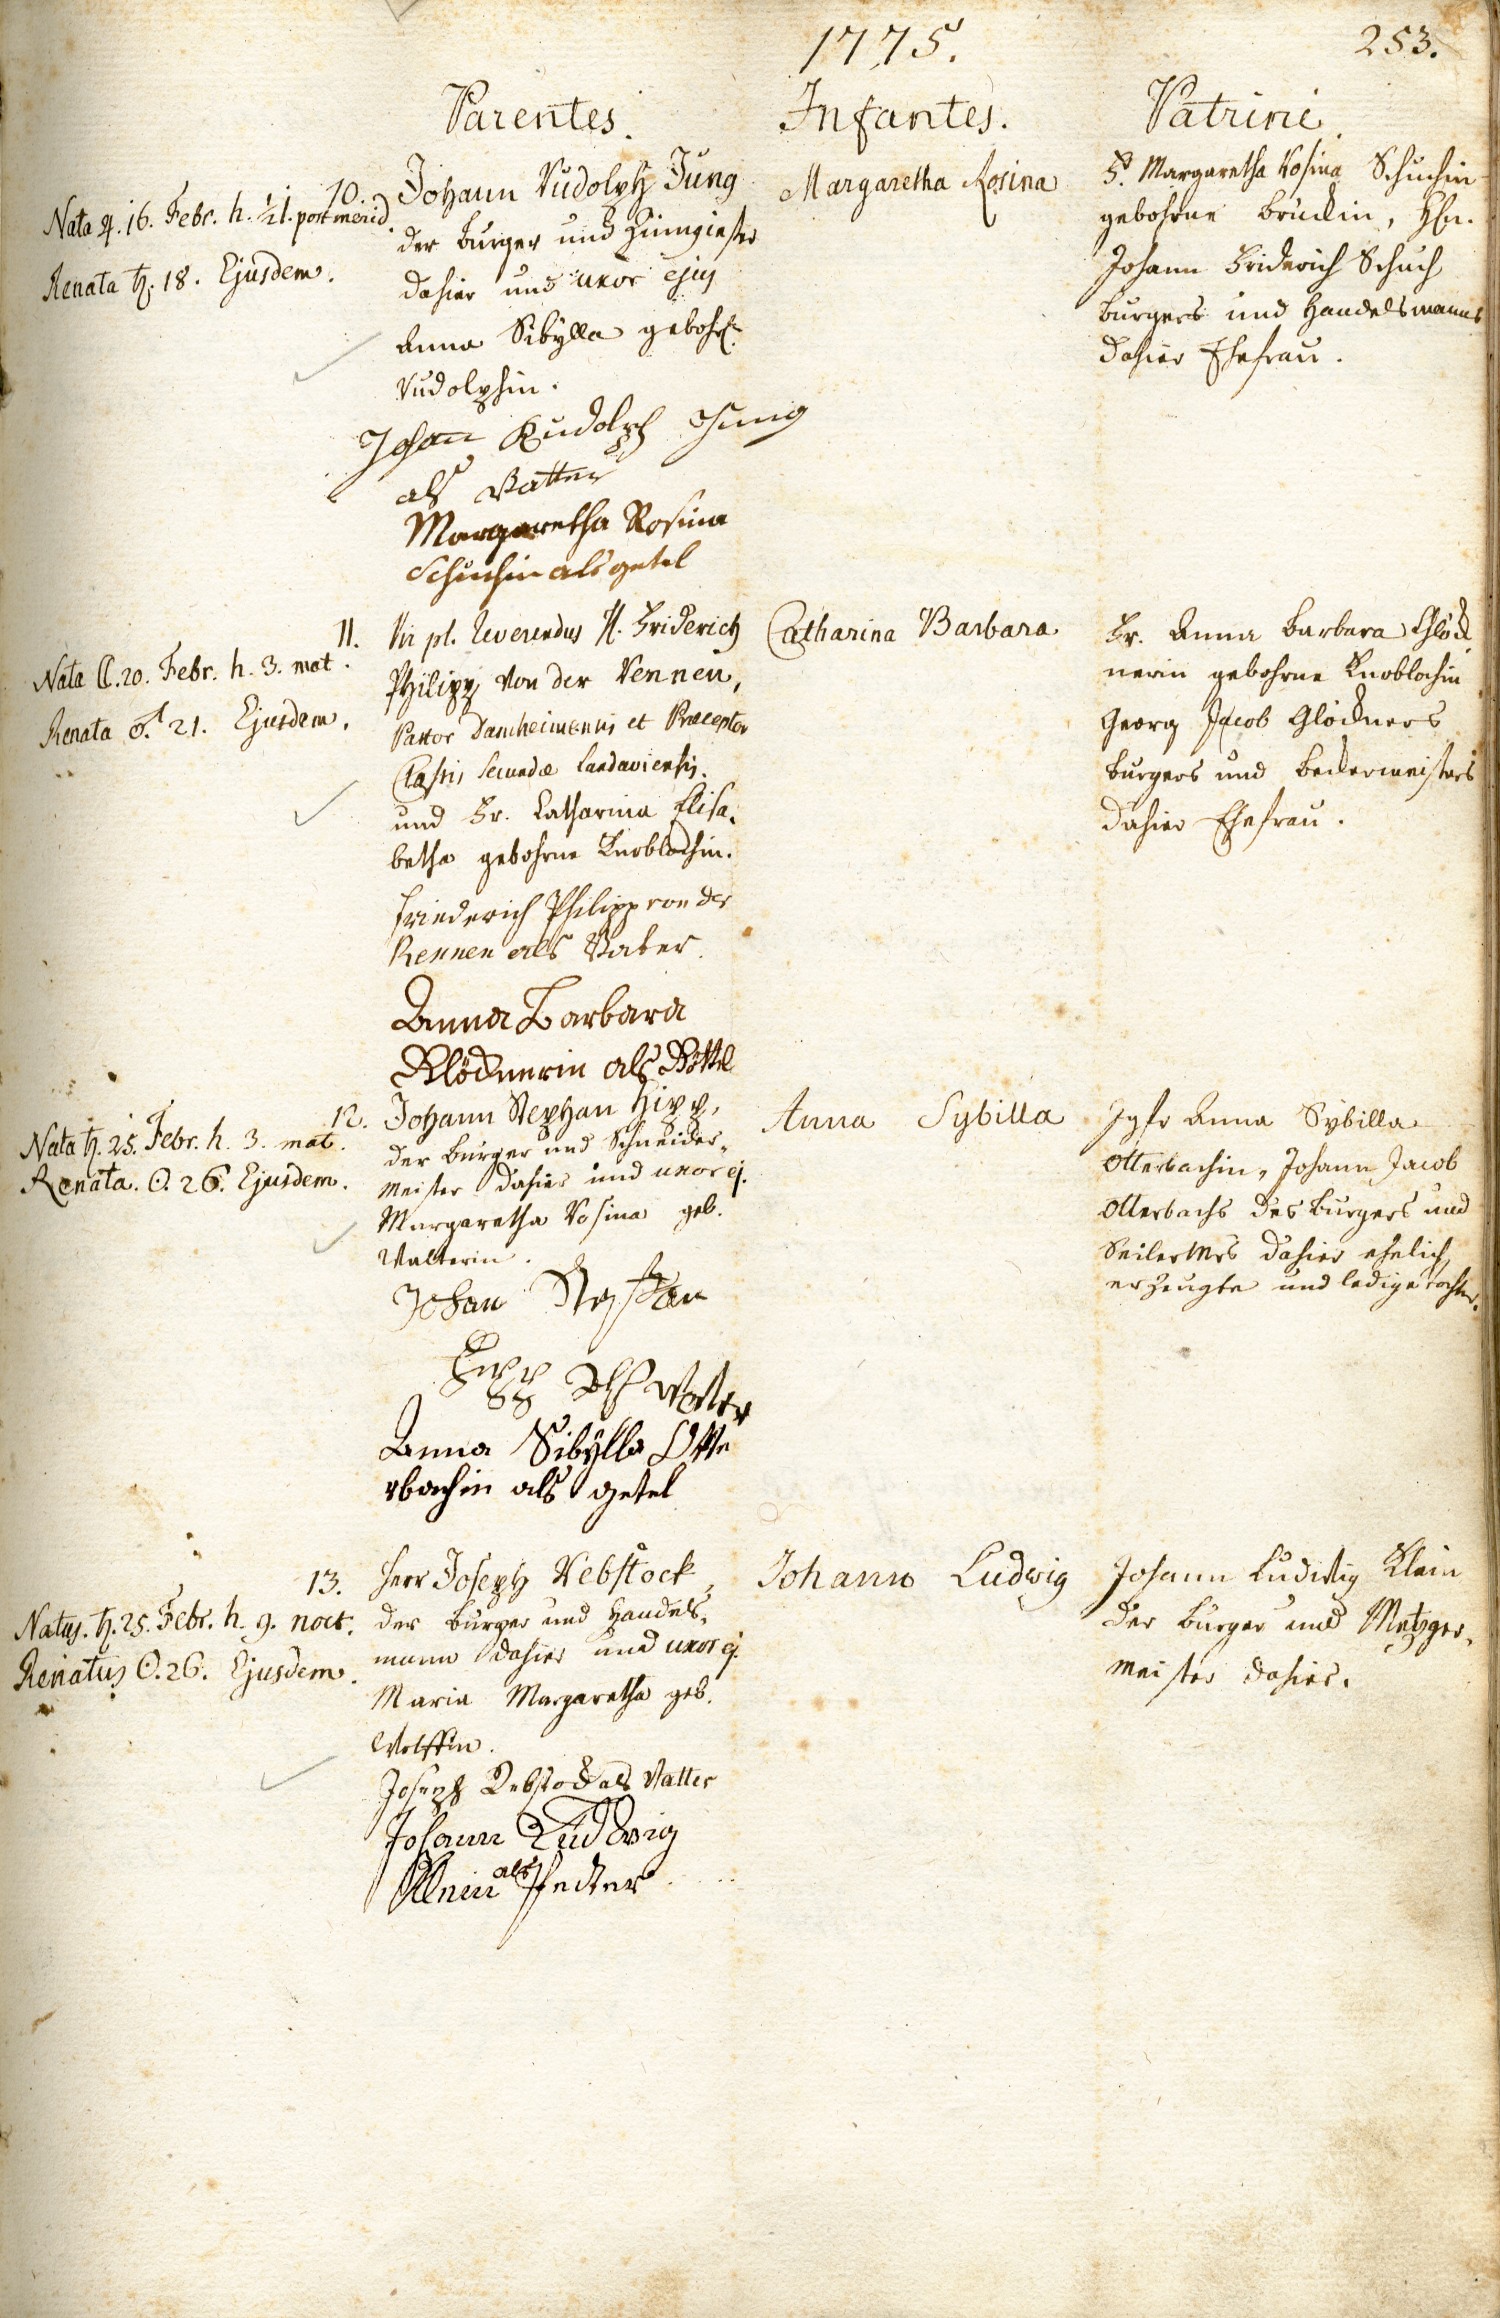 1775.
253.
Parentes.
Infantes.
Patrini.
10.
Nata ♃. 16. Febr. h. ½1. post merid.
Renata ♄. 18. Ejusdem.
Johann Rudolph Jung
der burger und Zinngieser
dahier und uxor ejus
Anna Sibÿlla gebohrn.
Rudolphin.
Johann Rudolph Jung
als Vatter
Margaretha Rosina
Schuchin als getel
Margaretha Rosina
Fr. Margaretha Rosina Schuchin
gebohrne Brückin, Hrn.
Johann Friderich Schuch
burgers und Handelsmanns
dahier Ehefrau.
11.
Nata ☾. 20. Febr. h. 3. mat.
Renata ♂. 21. Ejusdem.
Vir pl. Reverendus H. Friderich
Philipp von der Rennen,
Pastor Damheimensis et Præceptor
Classis Secundæ Landaviensis.
und Fr. Catharina Elisa,
betha gebohrne Knoblochin.
Friederich Philipp von der
Rennen als Vater.
Anna Barbara
Glöcknerin als Göttel
Catharina Barbara
Fr. Anna Barbara Glöck
nerin gebohrne Knoblochin
Georg Jacob Glöckners
burgers und beckermeisters
dahier Ehefrau.
12.
Nata ♄. 25. Febr. h. 3. mat.
Renata. ☉. 26. Ejusdem.
Johann Stephan Hipp,
der burger und Schneider,
meister dahier und uxor ej.
Margaretha Rosina geb.
Walterin.
Johan Stephan
Hipp als Vatter
Anna Sibÿlla Otte
rbachin als getel
Anna Sybilla
Jgfr Anna Sÿbilla
Otterbachin, Johann Jacob
Otterbachs des burgers und
Seilermrs dahier ehelich
erzeugte und ledige tochter.
13.
Natus. ♄. 25. Febr. h. 9. noct.
Renatus ☉. 26. Ejusdem.
Herr Joseph Rebstock,
der burger und Handels,
mann dahier und uxor ej.
Maria Margaretha geb.
Wolffin.
Joseph Rebstock als Vatter
Johann Ludwig
Klein als Pfetter
Johann Ludwig
Johann Ludwig Klein
der burger und Metzger,
meister dahier.